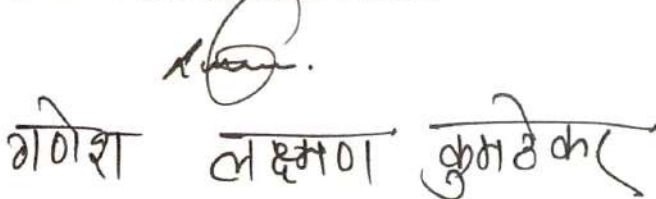 गणेश लक्ष्मण कुमठेकर